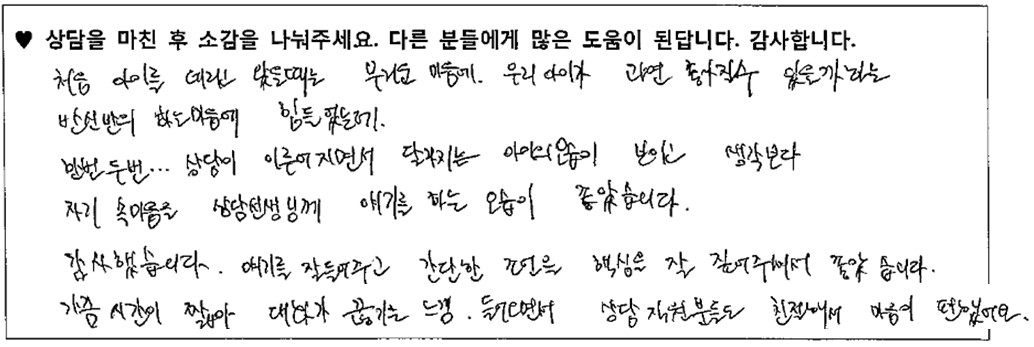 ♥ 상담을 마친 후 소감을 나눠주세요. 다른 분들에게 많은 도움이 된답니다. 감사합니다.
처음 아이를 데리고 왔을때는 무거운 마음에. 우리 아이가 과연 좋아질수 있을까 라는
반신반의 하는마음에 힘들었는데.
한번 두번... 상담이 이루어지면서 달라지는 아이의모습이 보이고 생각보다
자기 속마음을 상담선생님께 얘기를 하는 모습이 좋았습니다.
감사했습니다. 얘기를 잘들어주고 간단한 조언을 핵심을 잘 집어주셔서 좋았습니다.
가끔 시간이 짧아 대화가 끊기는 느낌. 상담 직원분들도 친절해서 마음이 편했어요.